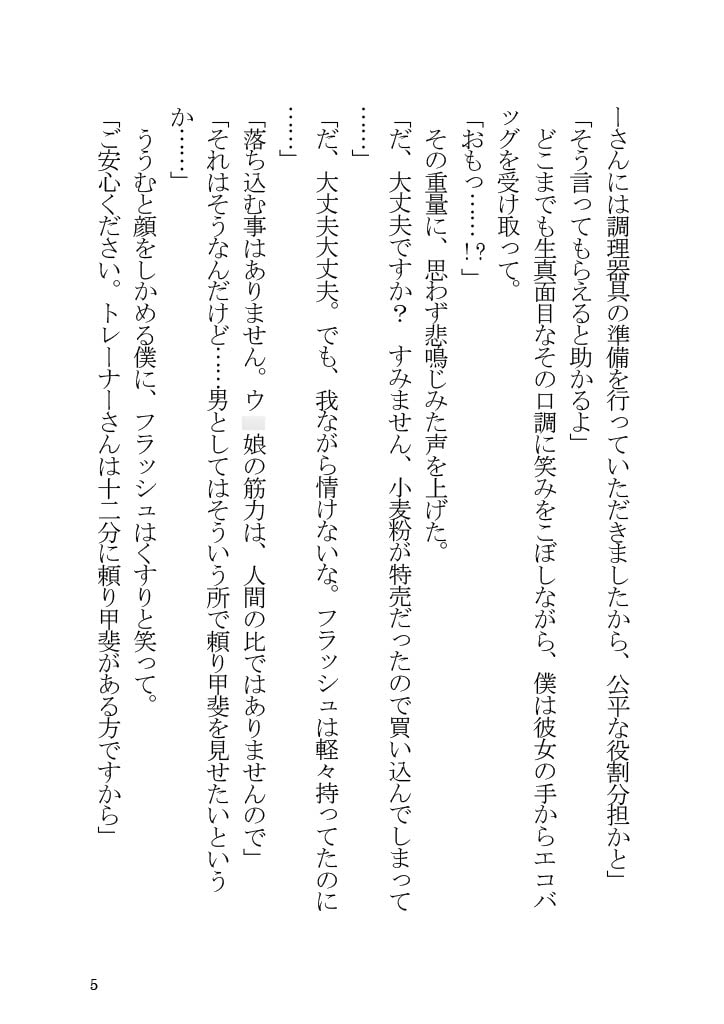 ーさんには調理器具の準備を行っていただきましたから、公平な役割分担かと」
「そう言ってもらえると助かるよ」
　どこまでも生真面目なその口調に笑みをこぼしながら、僕は彼女の手からエコバ
ッグを受け取って。
「おもっ……!?」
　その重量に、思わず悲鳴じみた声を上げた。
「だ、大丈夫ですか？　すみません、小麦粉が特売だったので買い込んでしまって
……」
「だ、大丈夫大丈夫。でも、我ながら情けないな。フラッシュは軽々持ってたのに
……」
「落ち込む事はありません。ウ 娘の筋力は、人間の比ではありませんので」
「それはそうなんだけど……男としてはそういう所で頼り甲斐を見せたいという
か……」
　ううむと顔をしかめる僕に、フラッシュはくすりと笑って。
「ご安心ください。トレーナーさんは十二分に頼り甲斐がある方ですから」
5